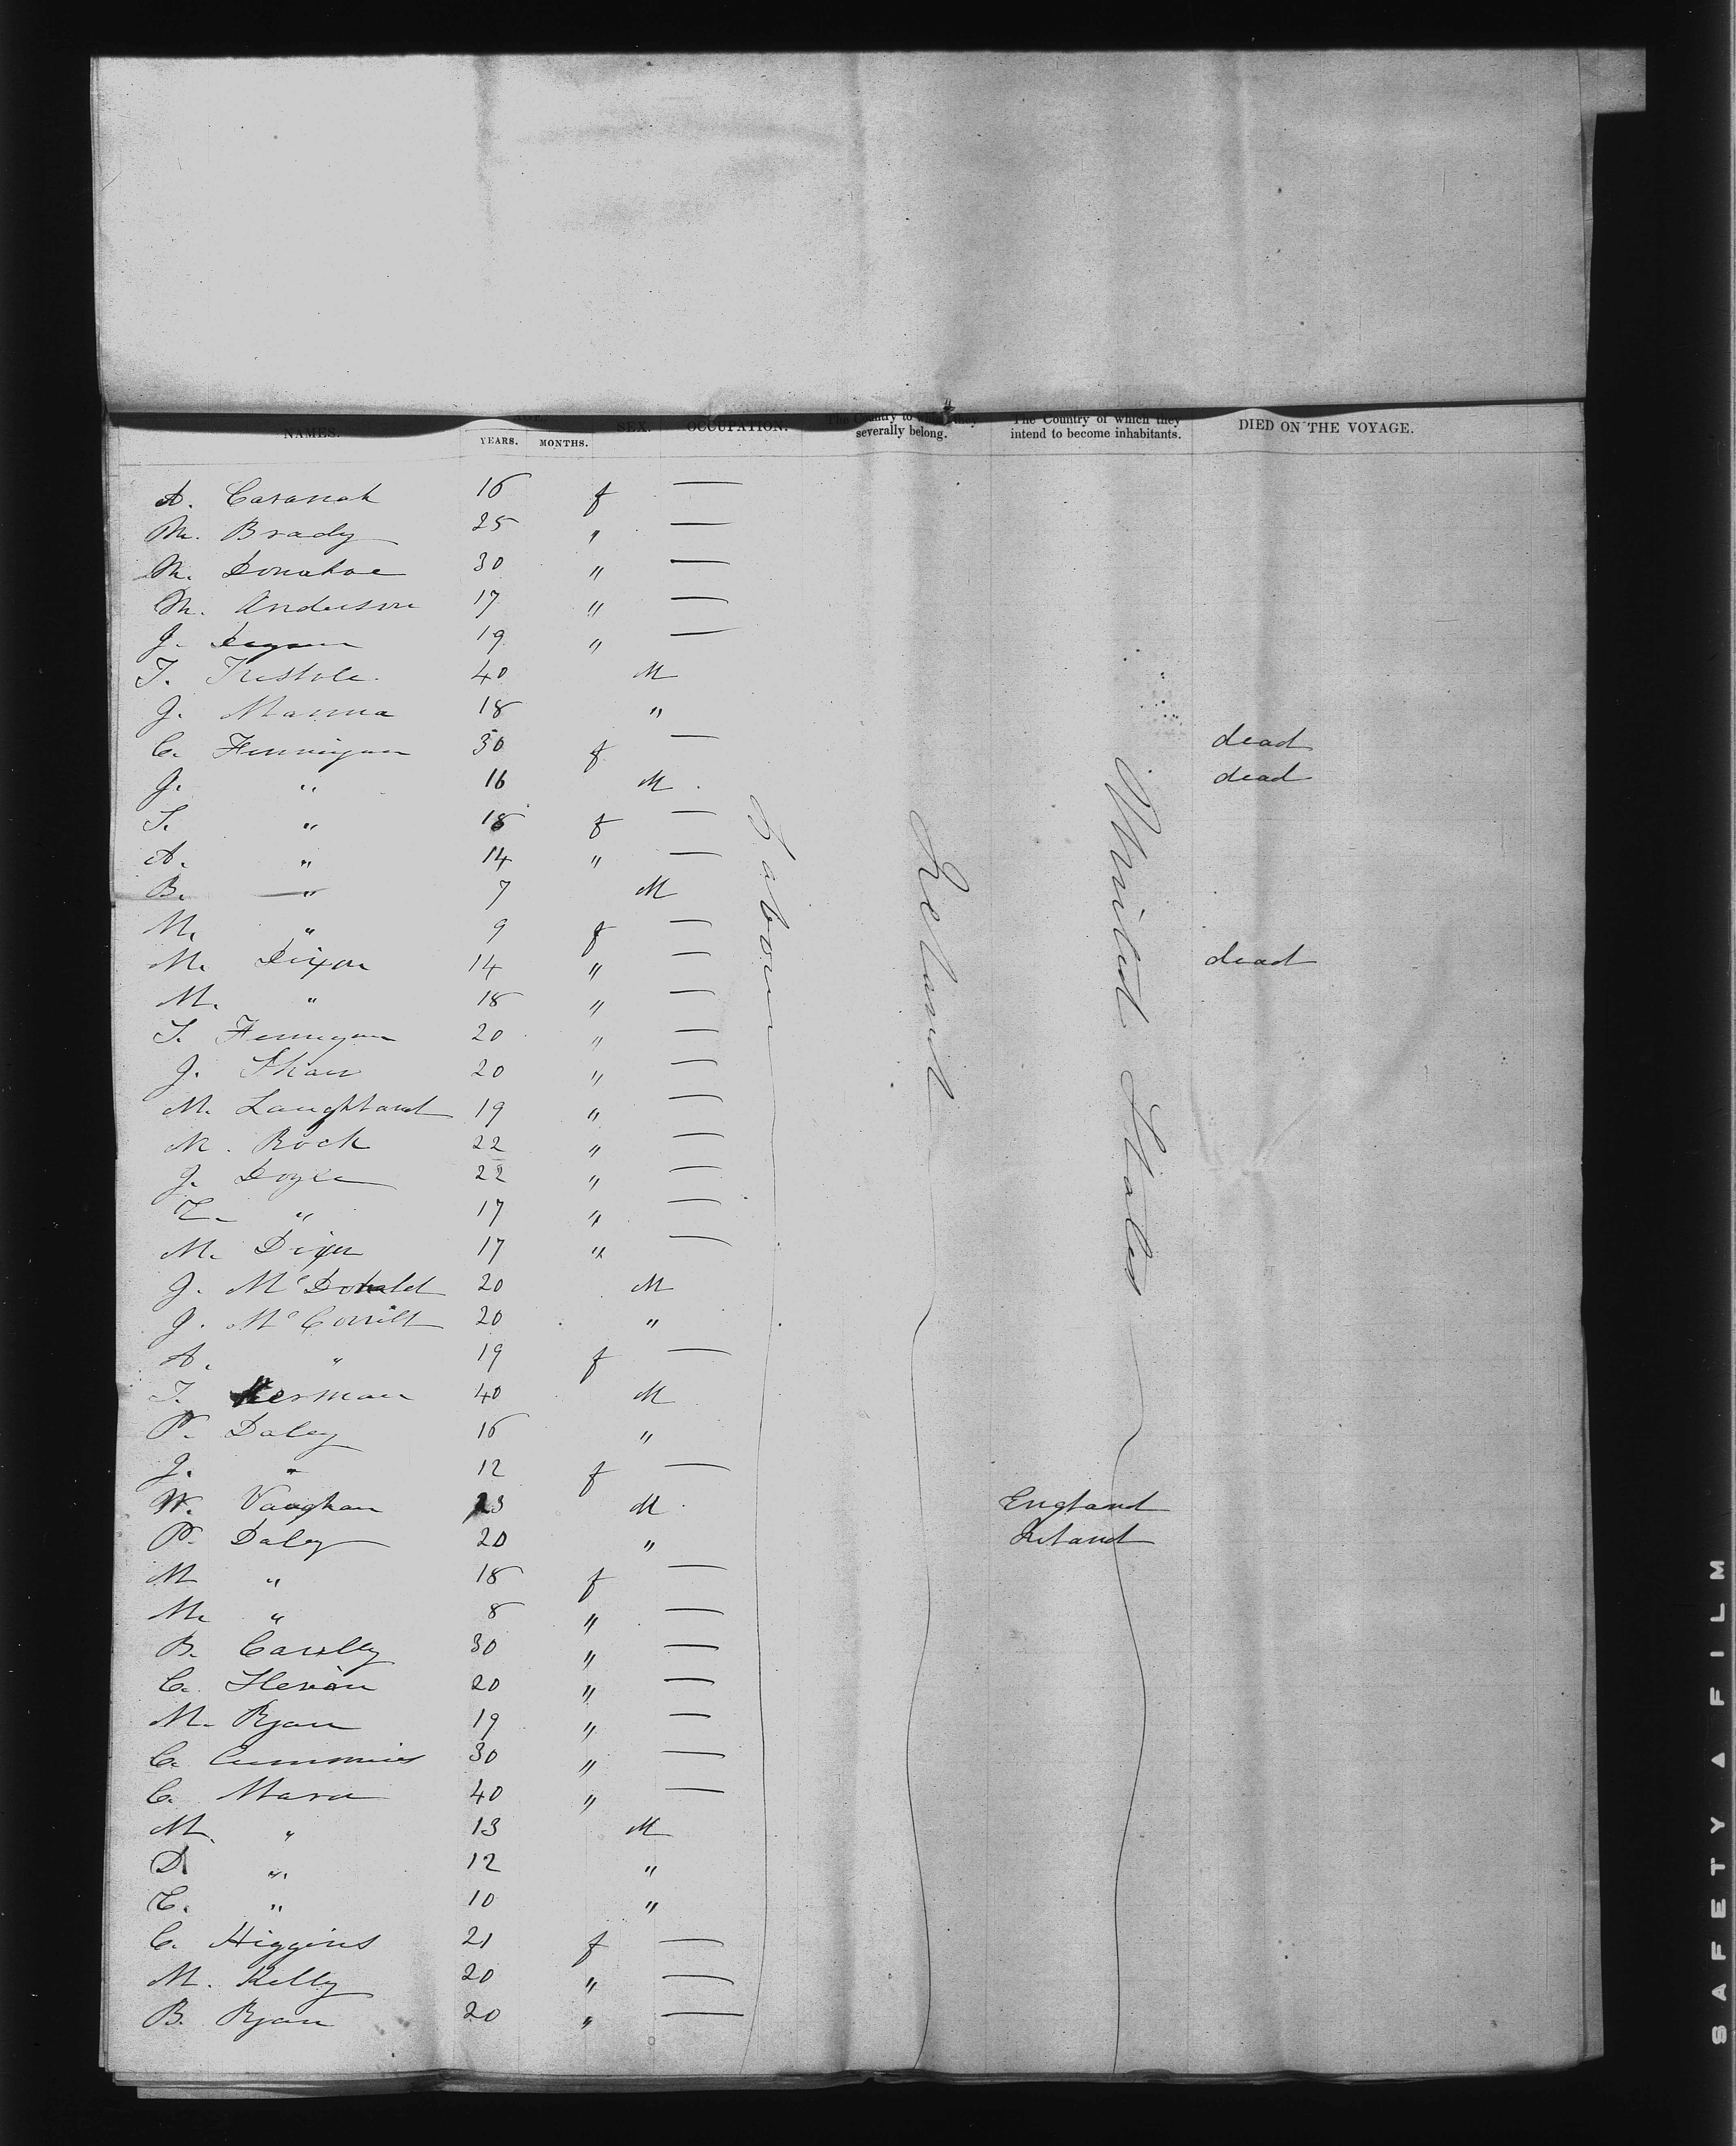 NAMES. YEARS. MONTHS. SEX. OCCUPATION. The Country to which they severally belong. The Country of which they intend to become inhabitants. DIED ON THE VOYAGE.
A. Cavanah 16 f —
M. Brady 25 " —
M. Donahoe 30 " —
M. Anderson 17 " —
J. 19 " —
T. 40 M
J. Manna 18 "
C. Finnigan 30 f — dead
J. " 16 M dead
S. " 18 f —
A. " 14 " —
B. " 7 M
M. " 9 f —
M. Dixon 14 " — dead
M. " 18 " —
S. Finnigan 20 " —
J. Shaw 20 " —
M. Laughland 19 " —
M. Rock 22 " —
J. Doyle 22 " —
" 17 " —
M. Dixon 17 " —
J. McDonald 20 M
J. 20 "
A. " 19 f —
T. 40 M
P. Daley 16 "
J. " 12 f —
W. Vaughan 23 M England
P. Daley 20 " Ireland
M " 18 f —
M. " 8 " —
B. 30 " —
C. 20 " —
M. Ryan 19 " —
C. Cummins 30 " —
C. Mara 40 " —
M. " 13 M
D " 12 "
" 10 "
C. Higgins 21 f —
M. Kelly 20 " —
B. Ryan 20 " —
Labour
Ireland
United States
SAFETY FILM